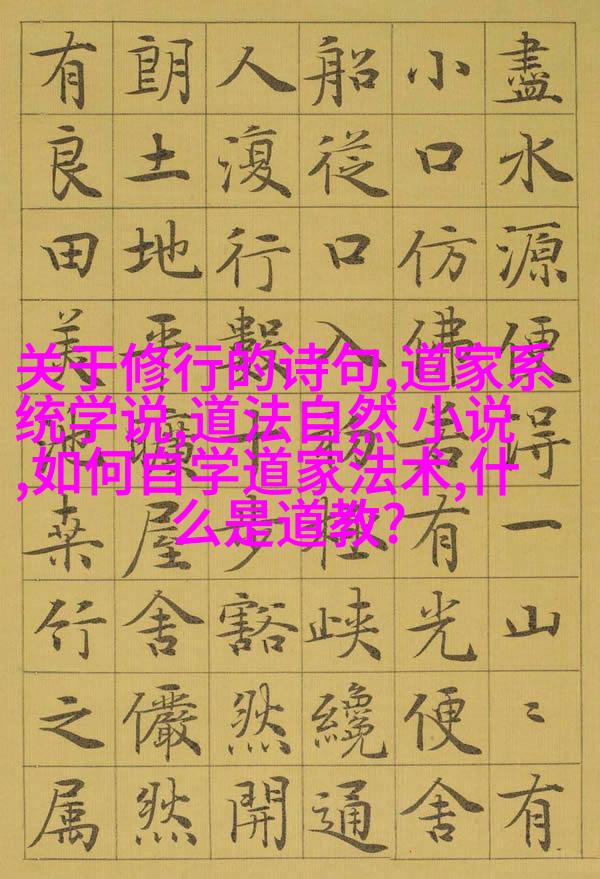 盡水源便得一山〻有
小口仿佛若有光便舍
船從口入初極峡纔通
人復行數十步豁然開
朗土地平曠屋舍儼然
有良田美池桑竹之属
关于修行的诗句,道家系
统学说,道法自然 小说
,如何自学道家法术,什
么是道教?